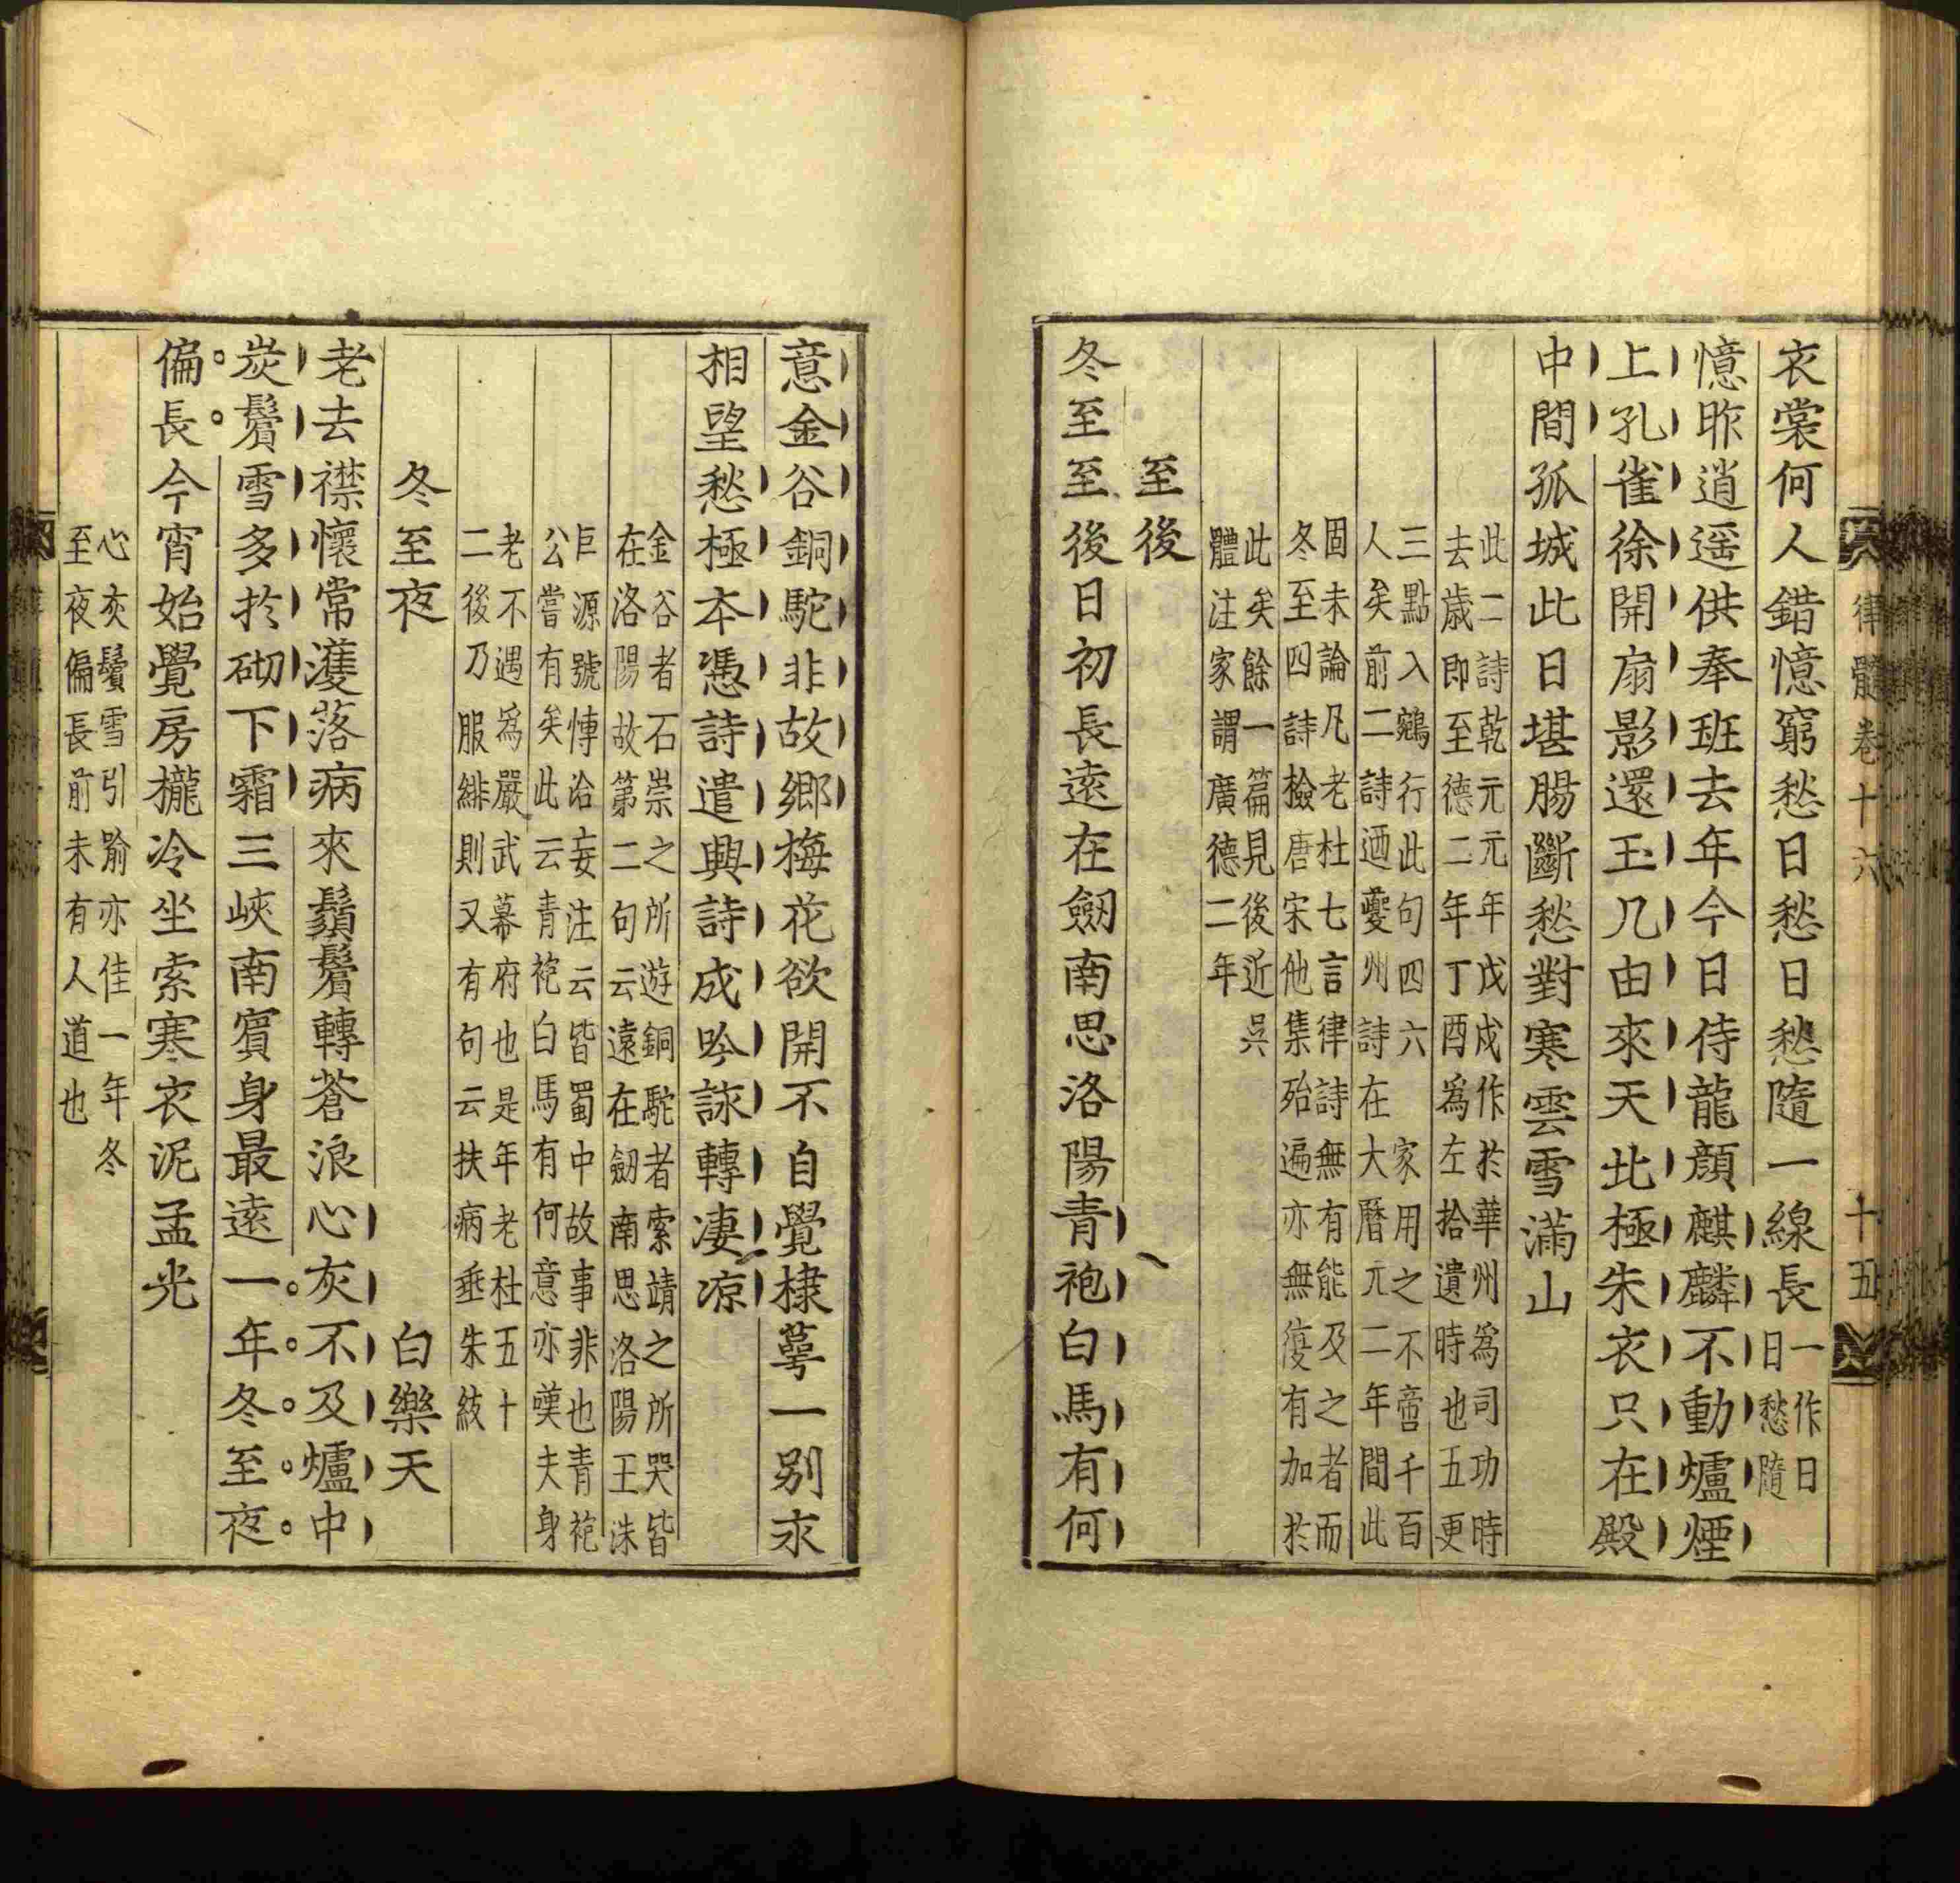 律髓卷十六
十五
衣裳何人錯憶窮愁日愁日愁隨一線長一作日日愁隨
憶昨逍遥供奉班去年今日侍龍顏麒麟不動爐煙
上孔雀徐開扇影還玉几由來天北極朱衣只在殿
中間孤城此日堪腸斷愁對寒雲雪滿山
此二詩乾元元年戊戌作於華州爲司功時
去歲即至德二年丁酉爲左拾遺時也五更
三點入鵷行此句四六家用之不啻千百
人矣前二詩迺夔州詩在大曆元二年間此
固未論凡老杜七言律詩無有能及之者而
冬至四詩撿唐宋他集殆遍亦無復有加於
此矣餘一篇見後近吳
體注家謂廣德二年
至後
冬至至後日初長遠在劒南思洛陽青袍白馬有何
意金谷銅駝非故鄉梅花欲開不自覺棣萼一别永
相望愁極本憑詩遣興詩成吟詠轉凄凉
金谷者石崇之所遊銅駝者索靖之所哭皆
在洛陽故第二句云遠在劒南思洛陽王洙
巨源號愽洽妄注云皆蜀中故事非也青袍
公嘗有矣此云青袍白馬有何意亦嘆夫身
老不遇爲嚴武幕府也是年老杜五十
二後乃服緋則又有句云扶病垂朱紱
冬至夜
白樂天
老去襟懷常濩落病來鬚鬢轉蒼浪心灰不及爐中
炭鬢雪多於砌下霜三峽南賓身最遠一年冬至夜
偏長今宵始覺房櫳冷坐索寒衣泥孟光
心灰鬢雪引喻亦佳一年冬
至夜偏長前未有人道也